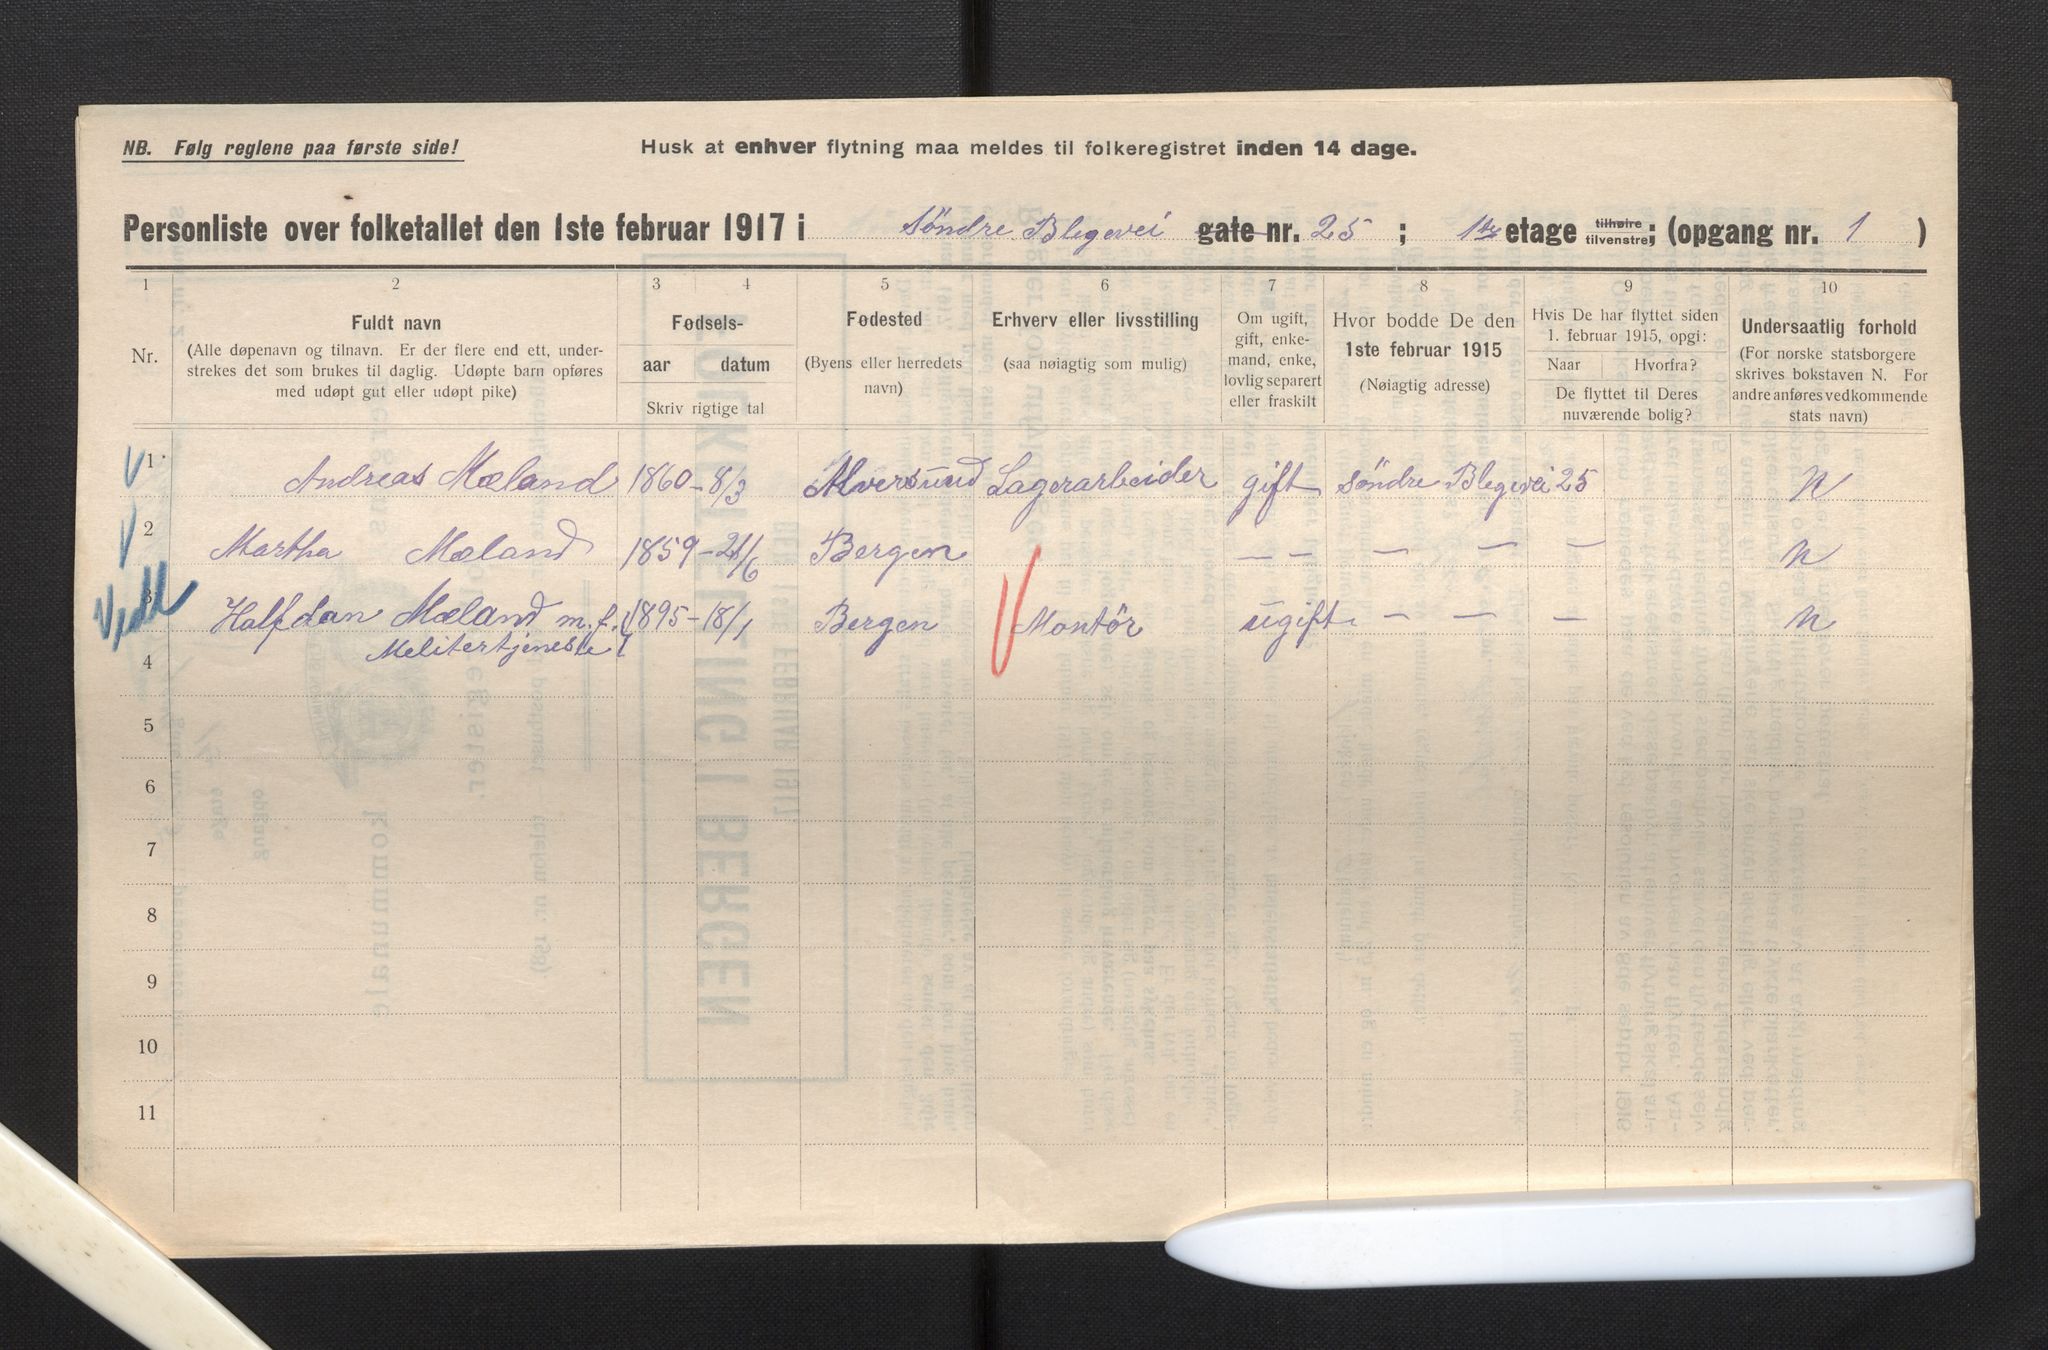 NB. Følg reglene paa første side!
Husk at enhver flytning maa meldes til folkeregistret inden 14 dage.
Personliste over folketallet den 1ste februar 1917 i Søndre Blegevei gate nr. 25 ; 1ste etage tilhøire tilvenstre; (opgang nr. 1 )
1 2 3 4 5 6 7 8 9 10
Nr.
Fuldt navn
(Alle døpenavn og tilnavn. Er der flere end ett, under-
strekes det som brukes til daglig. Udøpte barn opføres
med udøpt gut eller udøpt pike)
Fødsels-
aar datum
Skriv rigtige tal
Fødested
(Byens eller herredets
navn)
Erhverv eller livsstilling
(saa nøiagtig som mulig)
Om ugift,
gift, enke-
mand, enke,
lovlig separert
eller fraskilt
Hvor bodde De den
1ste februar 1915
(Nøiagtig adresse)
Hvis De har flyttet siden
1. februar 1915, opgi:
Naar Hvorfra?
De flyttet til Deres
nuværende bolig?
Undersaatlig forhold
(For norske statsborgere
skrives bokstaven N. For
andre anføres vedkommende
stats navn)
1 Andreas Mæland 1860 - 8/3 Alversund Lagerarbeider gift Søndre Blegevei 25 N
2 Martha Mæland 1859 - 21/6 Bergen — — — — — N
3 Halfdan Mæland m. f. 1895 - 18/1 Bergen Montör ugift — — — N
Melitertjeneste
4
5
6
7
8
9
10
11